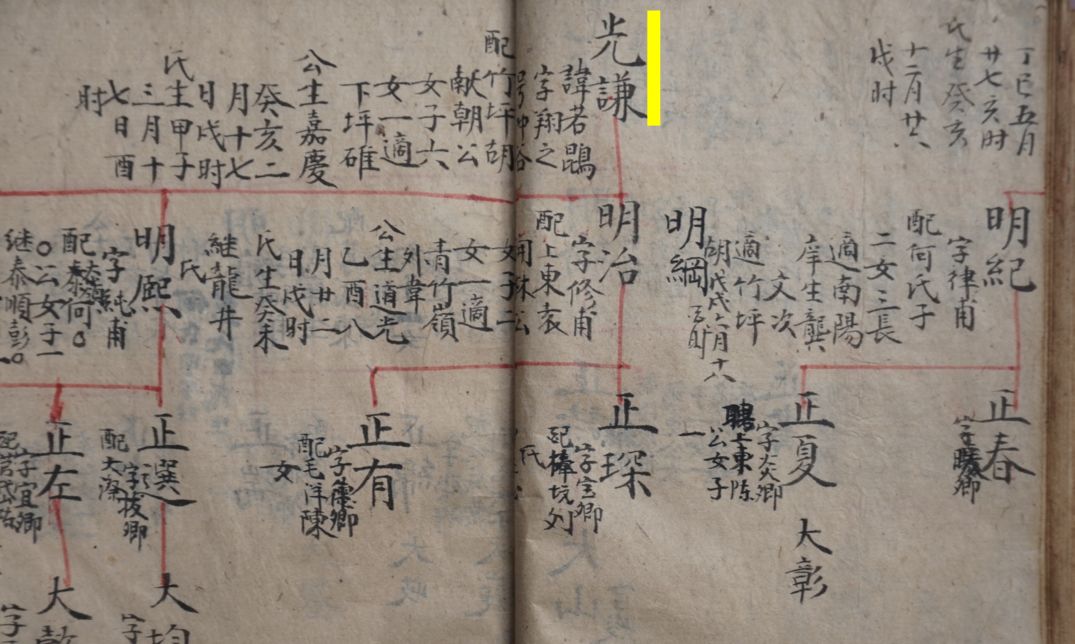 丁巳五月
廿七亥时
氏生癸亥
十二月廿六
戌时
光謙
諱若鵾
字翔之
配竹坪胡
献朝公
女子六
女一適
下坪碓
公生嘉慶
癸亥二
月十七
日戌时
氏生甲子
三月十
七日酉
时
明紀
字律甫
配何氏子
二女二長
適南陽
庠生龔
文次
適竹坪
胡
明綱
戊戌六月十八
明治
字修甫
配上東亥
女子二
女一適
青竹嶺
外韋
公生道光
乙酉八
月廿二
日戌时
氏生癸未
継龍井
氏
明熈
字純甫
配
何
公女子一
継泰順彭
正春
字
卿
正夏
字炎卿
聘上東陈
公女子
一
大彰
正琛
字宝卿
配棒坑列
氏
正有
字
卿
配毛洋陳
女
正選
字拔卿
配大
正左
字宜卿
配
大
大
字
字